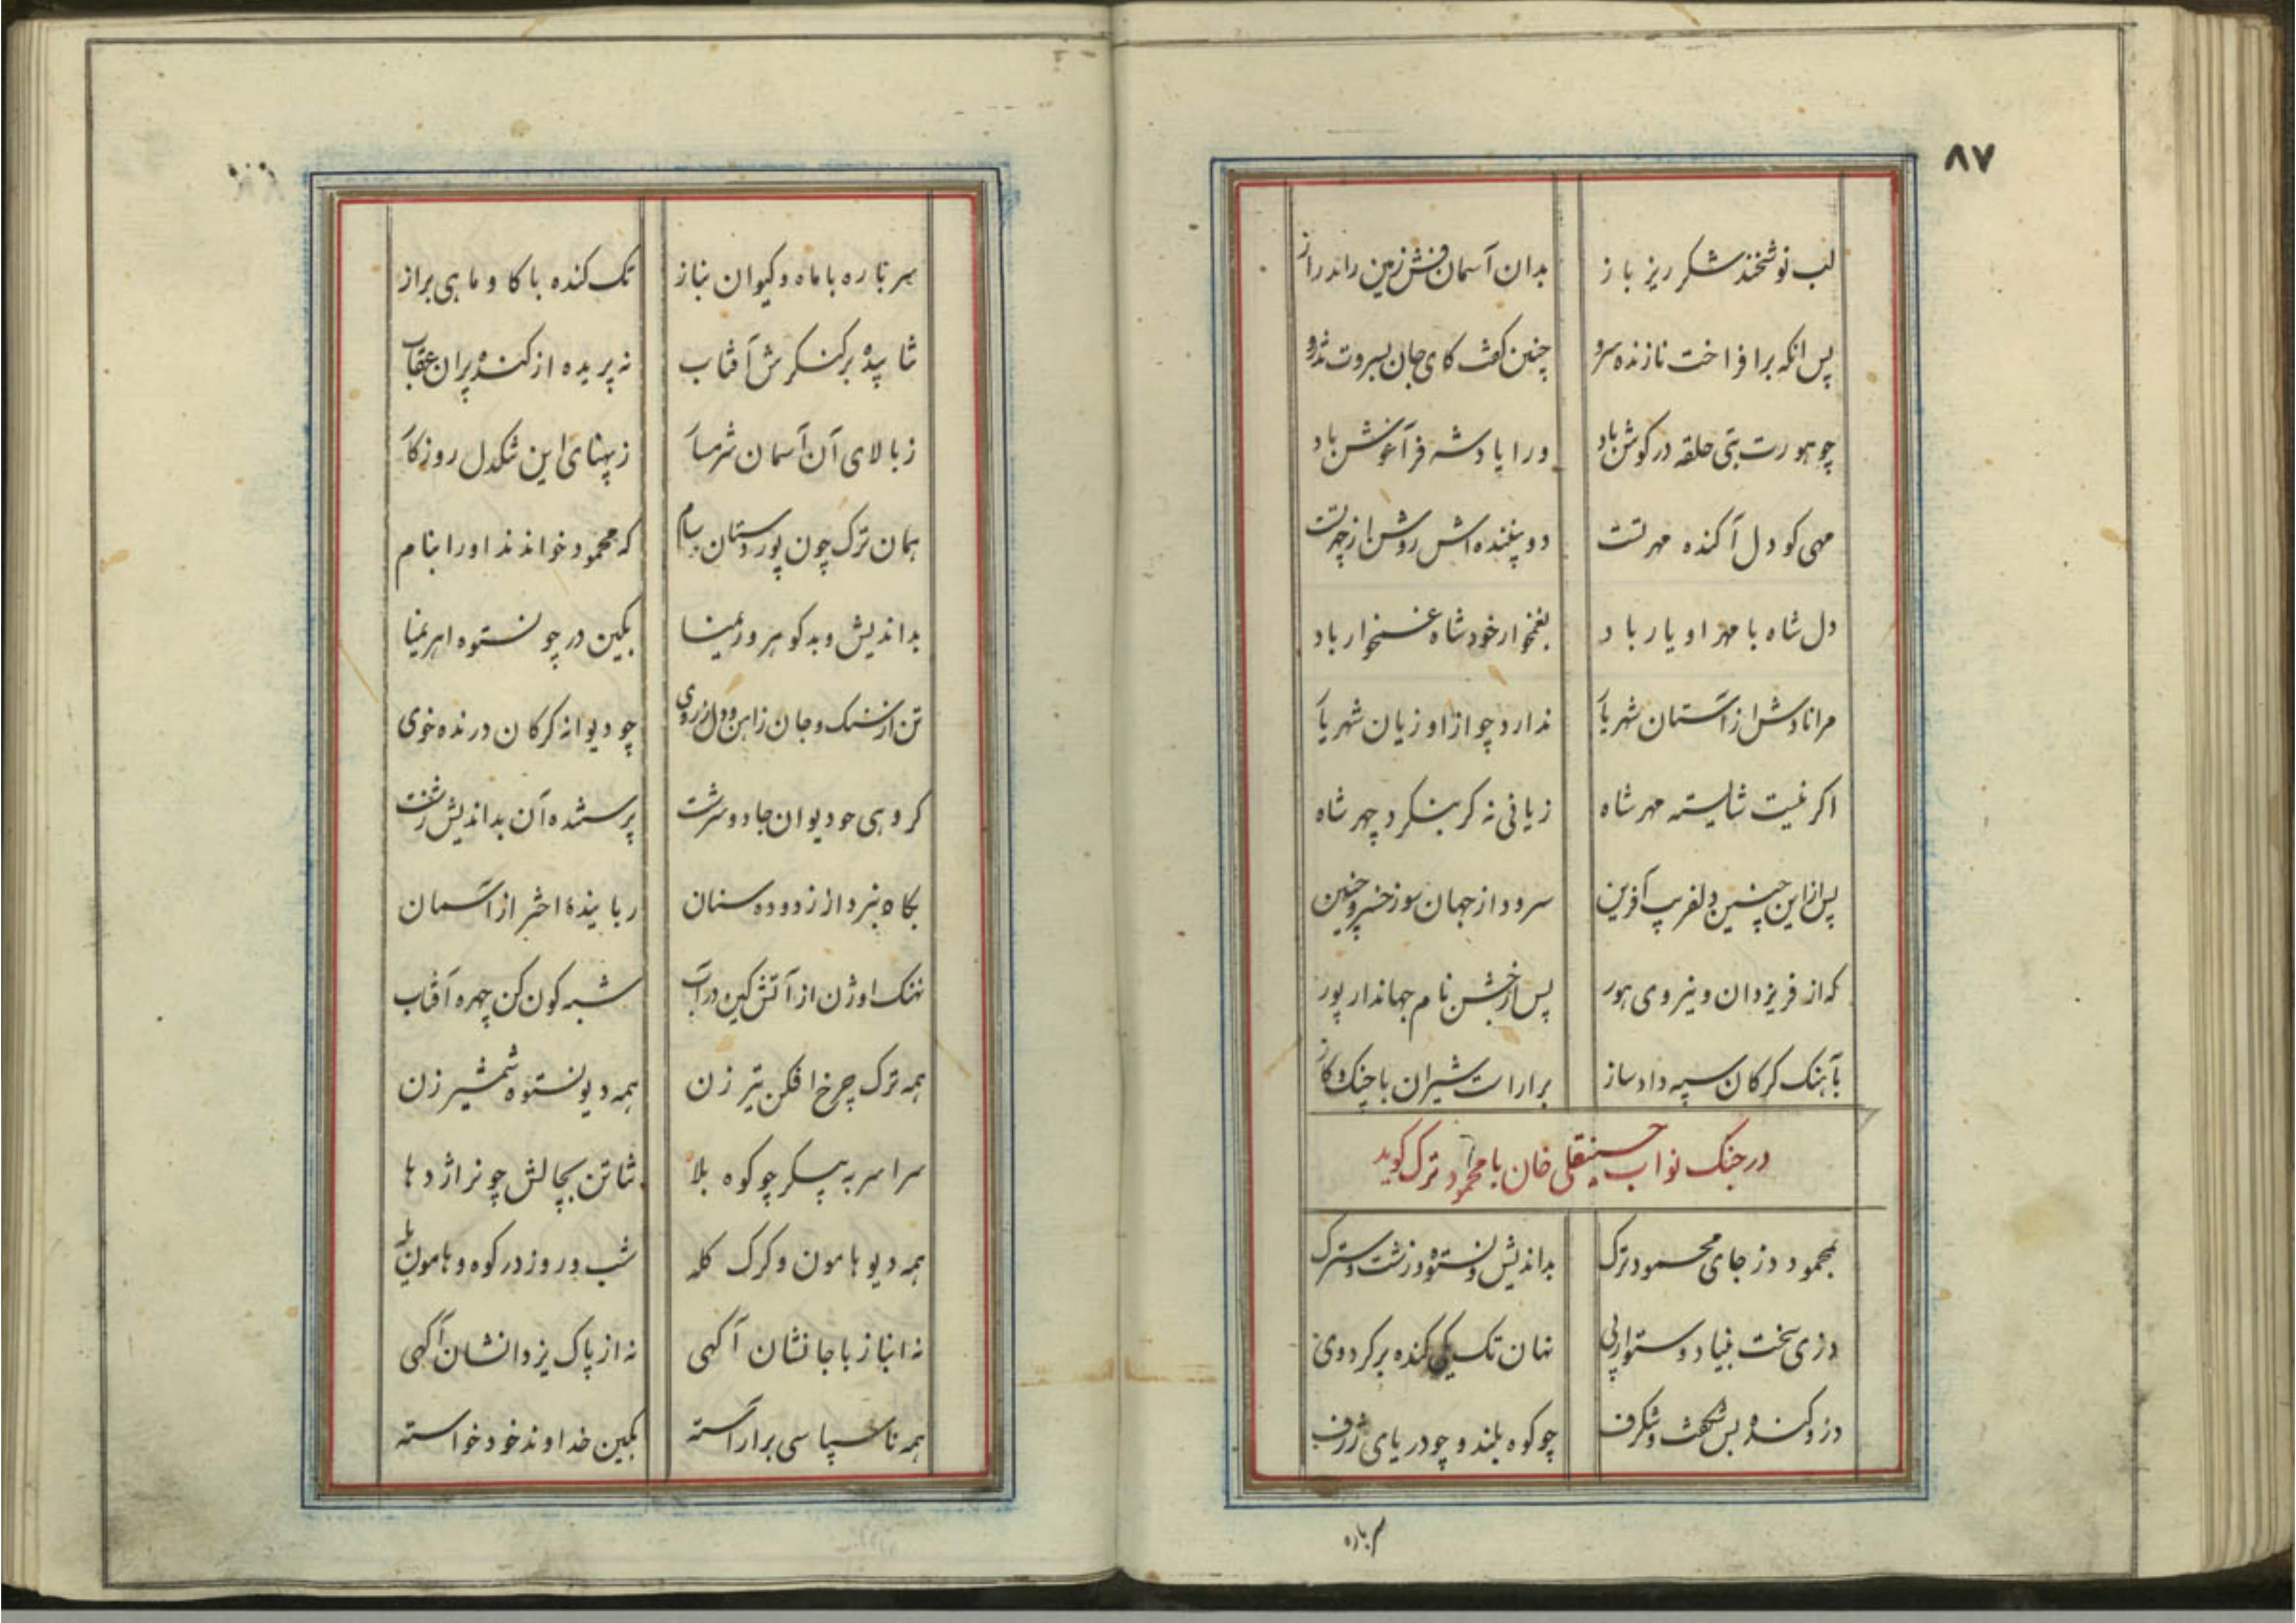 ۸۷
لب نوشخند شکر ریز باز بدان آسمان فش زمین راند راز
پس انکه برافراخت نازنده سرو چنین کفت کای جان بسروت تذرو
چو هورت بتی حلقه در کوش باد ورا پادشه فر آغوش باد
مهی کو دل آکنده مهر تست دو بیننده اش روشن از چهر تست
دل شاه با مهر او یار باد بغمخوار خود شاه غمخوار باد
مرانادش از آستان شهریار ندارد چو از او زیان شهریار
اکر نیست شایسته مهر شاه زیانی نه کر بنکرد چهر شاه
پس از این چنین دلفریب آفرین سرود از جهان سوز خسرو چنین
که از فر یزدان و نیروی هور پس از خشن نام جهاندار پور
بآهنک کرکان سپه داد ساز براراست شیران با چنک و کاز
در جنک نواب حسینقلی خان با محمود ترک کوید
بمحمود دز جای محمود ترک بداندیش و نستوه و زشت و سترک
دزی سخت بنیاد و ستوار پی نهان تک یکی کنده بر کرد وی
دز و کنده بس شکفت و شکرف چو کوه بلند و چو دریای ژرف
سر باره
سر باره با ماه و کیوان بناز تک کنده با کاو و ماهی براز
نتابیده بر کنکرش آفتاب نه پریده از کنده پران عقاب
ز بالای آن آسمان شرمسار ز پهنای این تنکدل روزکار
همان ترک چون پور دستان سام که محمود خواندند او را بنام
بداندیش و بدکوهر و ریمنا بکین در چو نستوه اهریمنا
تن از سنک و جان ز اهن و دل ز روی چو دیوانه کرکان درنده خوی
کروهی چو دیوان جادو سرشت پرستنده آن بداندیش زشت
بکاه نبرد از زدوده سنان رباینده اختر از آسمان
نهنک اوژن از آتش کین در آب شبه کون کن چهره آفتاب
همه ترک چرخ افکن تیر زن همه دیو نستوه شمشیر زن
سراسر به پیکر چو کوه بلا شتابن بچالش چو نر اژدها
همه دیو هامون و کرک کله شب و روز در کوه و هامون یله
نه انباز با جانشان آکهی نه از پاک یزدانشان آکهی
همه ناسپاسی براراسته بکین خداوند خود خواسته